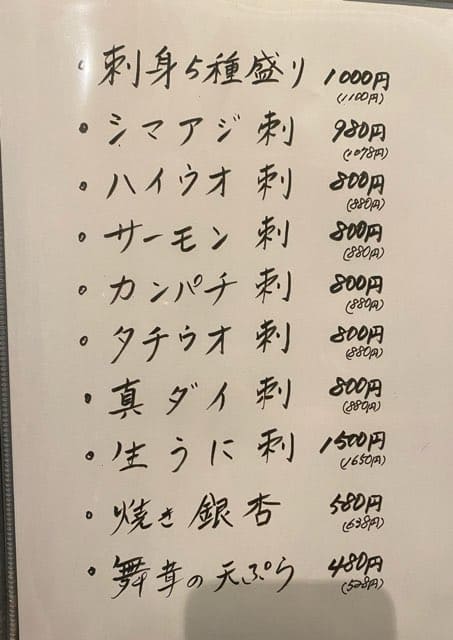 • 刺身5種盛り 1000円
(1100円)
• シマアジ刺 980円
(1078円)
• ハイウオ刺 800円
(880円)
• サーモン刺 800円
(880円)
• カンパチ刺 800円
(880円)
• タチウオ刺 800円
(880円)
• 真ダイ刺 800円
(880円)
• 生うに刺 1500円
(1650円)
• 焼き銀杏 580円
(638円)
• 舞茸の天ぷら 480円
(528円)